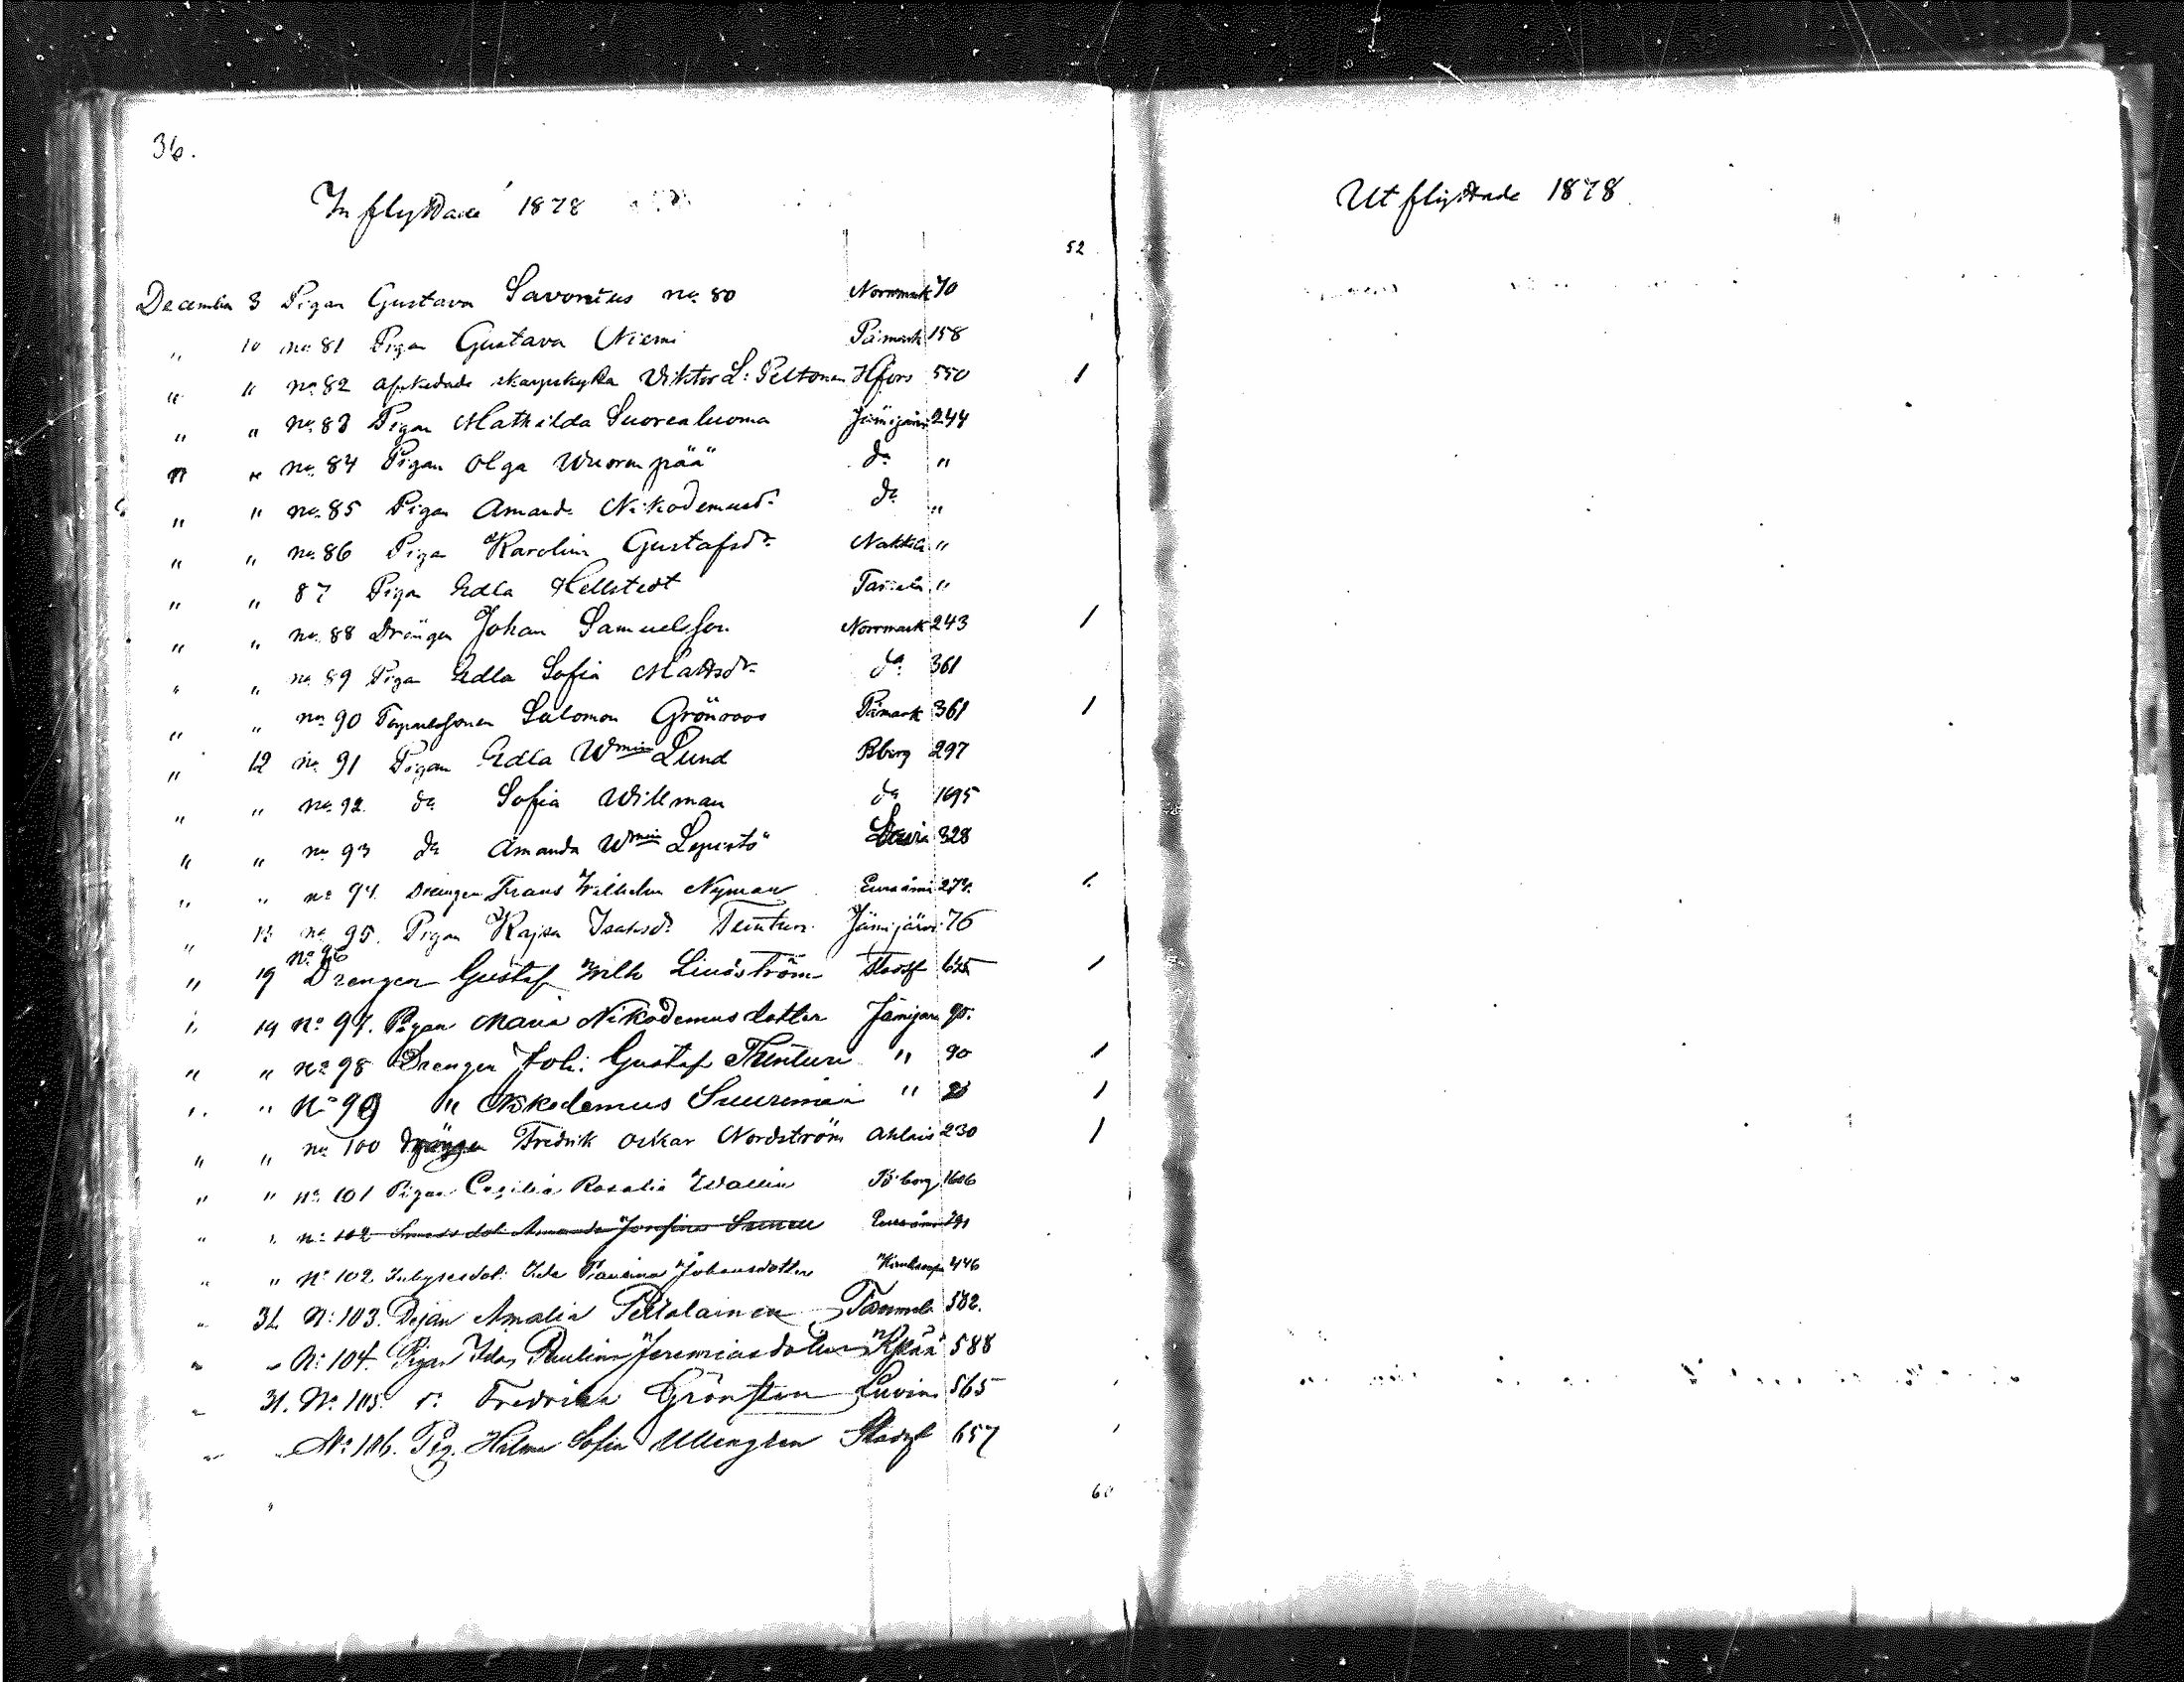 36.
Inflyttade 1878
52
December 3 Pigan Gustava Savonius no. 80 Norrmark 70
" 10 no. 81 Pigan Gustava Niemi Påmark 158
" " no. 82 afskedade skarpskytten Viktor L: Peltonen Hfors 550 1
" " no. 83 Pigan Mathilda Suorealuoma Jämijärvi 244
" " no. 84 Pigan Olga Wuorenpää do "
" " no. 85 Pigan Amanda Nikodemusdr do "
" " no. 86 Pigan Karolina Gustafsdr Nakkila "
" " 87 Pigan Edla Hellstedt "
" " no. 88 Drängen Johan Samuelsson Norrmark 243 1
" " no. 89 Pigan Edla Sofia Mattsdr do 361
" " no. 90 Salomon Grönroos Påmark 361 1
" 12 no. 91 Pigan Edla Wmina Lund Bberg 297
" " no. 92. do Sofia Willman do 1695
" " no. 93 do Amanda Wmina Lepistö Lavia 328
" " no. 94. Drengen Frans Wilhelm Nyman Euraåminne 273. 1
" no. 95. Pigan Kajsa Isaksdr Tenturi Jämijärvi 76
" 19 No. 96 Drengen Gustaf Wilh Lindström 625 1
" 19 No. 97. Pigan Maria Nikodemusdotter Jämijärvi 90.
" " no. 98 Drengen Joh: Gustaf Thenturi " 90 1
" " No. 99 " Nikodemus Suurimaa " 1
" " no. 100 Drängen Fredrik Oskar Nordström Ahlais 230 1
" " no. 101 Pigan Cecilia Rosalia Wallin Bjöborg 1606
" " no. 102 Amanda Josefina Euraåminne 291
" " No. 102. Inhysesdot: Ida Johansdotter 446
" 31. N: 103. Pejan Amalia Peltolainen Tammela 582.
" " N: 104. Pigan Ida Paulina Jeremiasdotter 588
" 31. No. 105. Fredrika Grönsten Luvia 565
" " No. 106. Pig. Hilma Sofia Ullengren 657
60
Utflyttade 1878.